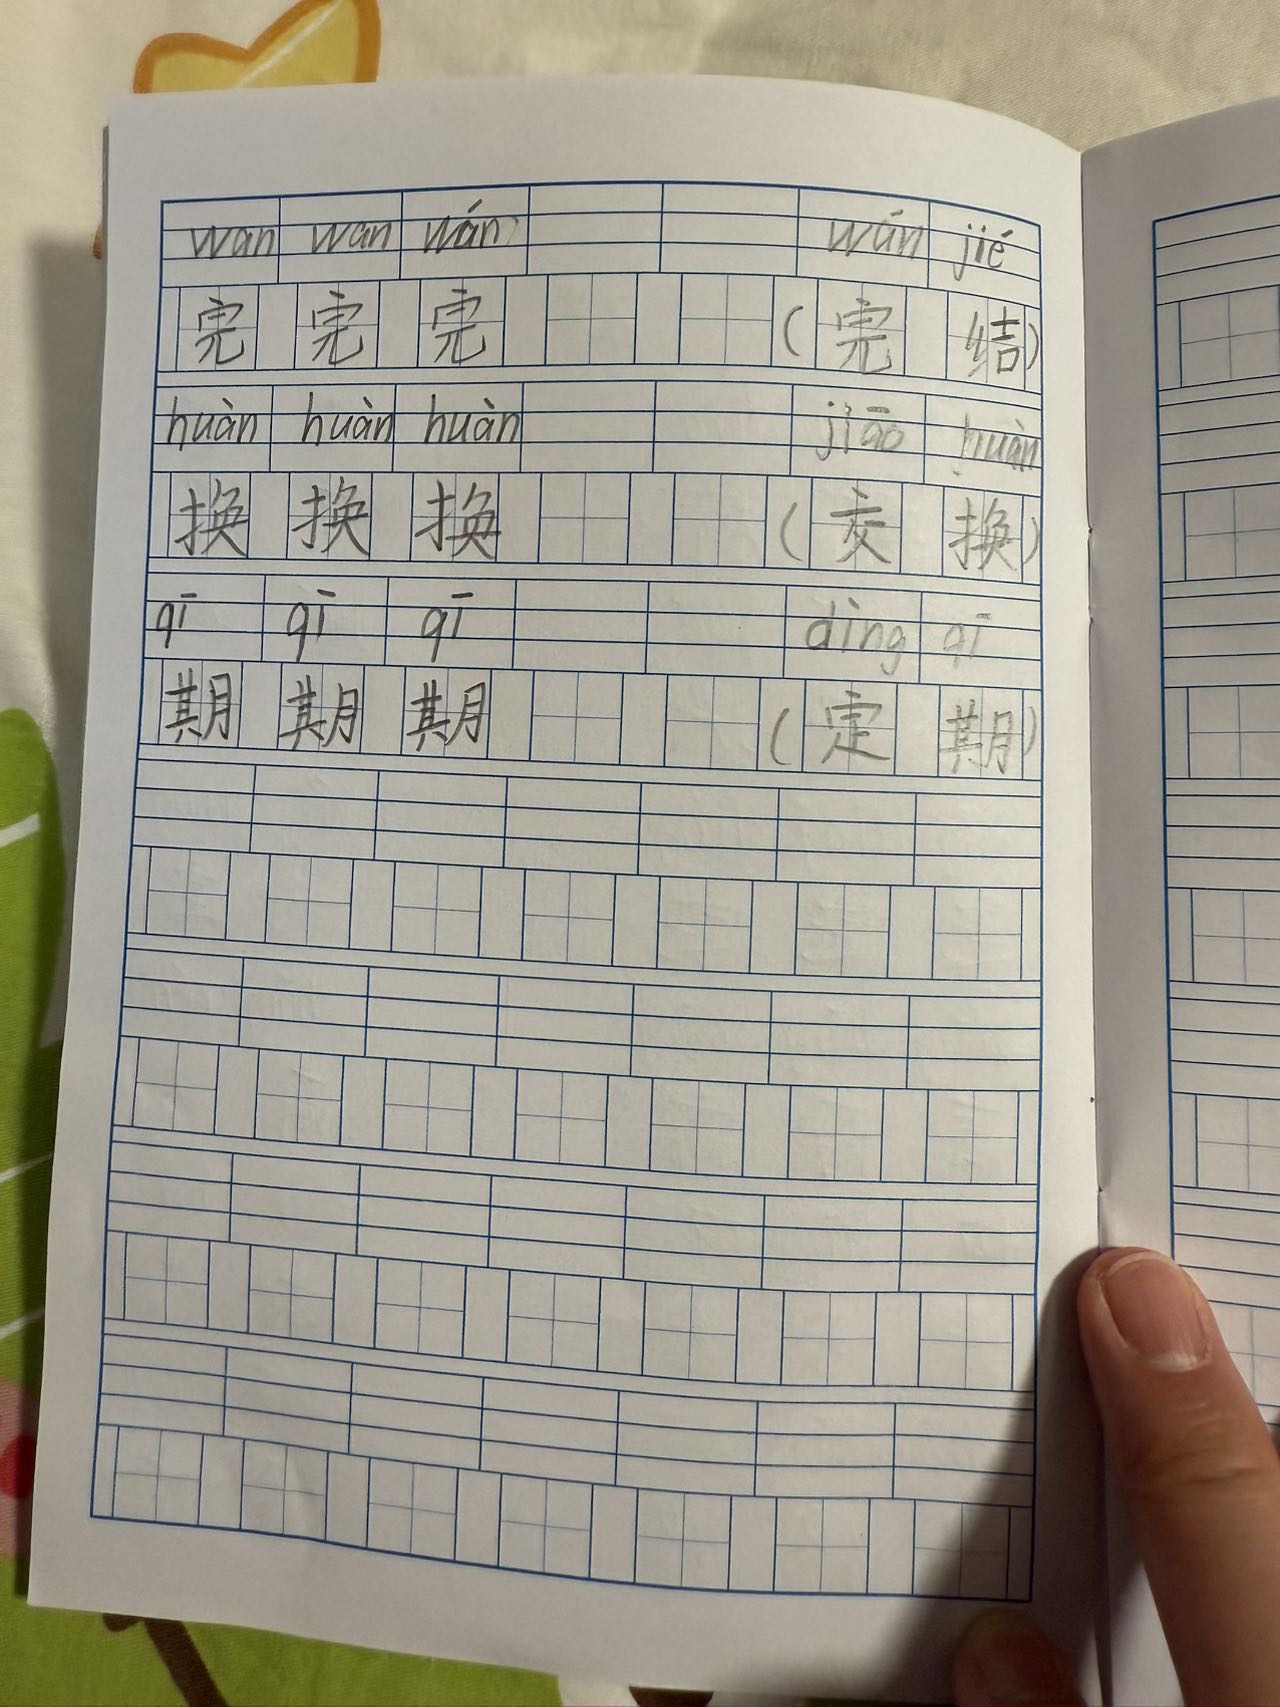 wan wan wán wán jié
完 完 完 (完 结)
huàn huàn huàn jiāo huàn
换 换 换 (交 换)
qī qī qī dìng qī
期 期 期 (定 期)